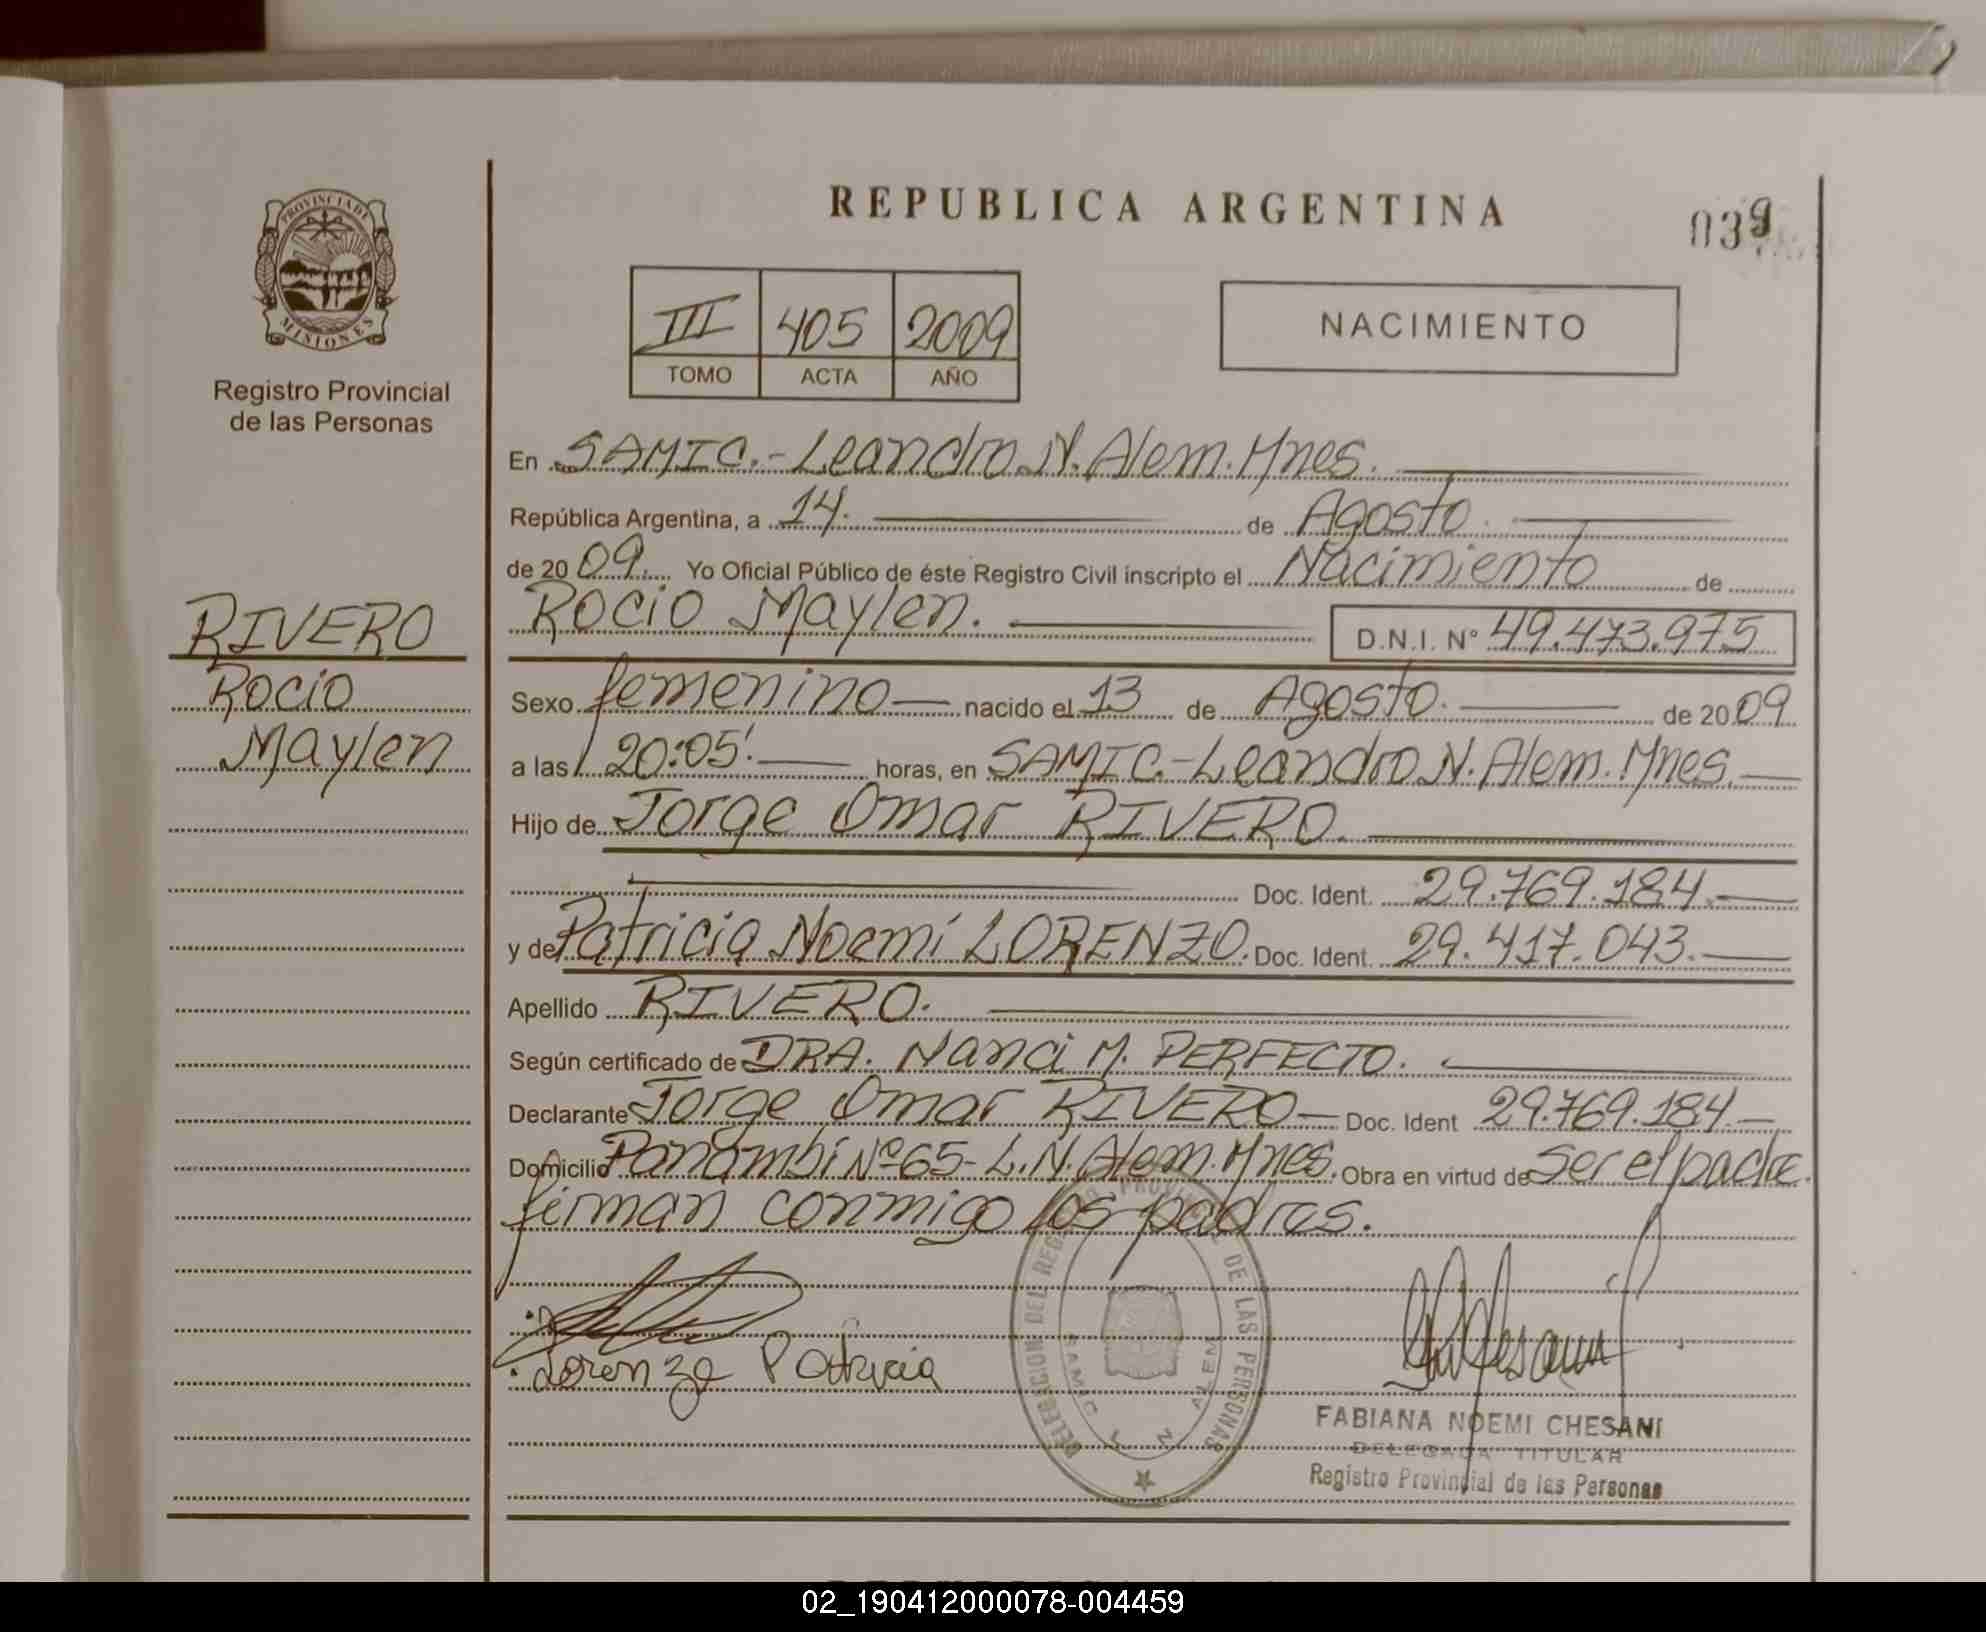 REPUBLICA ARGENTINA
039
PROVINCIA DE
MISIONES
Registro Provincial
de las Personas
III 405 2009
TOMO ACTA AÑO
NACIMIENTO
En SAMIC.-Leandro N. Alem. Mnes.
República Argentina, a 14. de Agosto.
de 2009. Yo Oficial Público de éste Registro Civil inscripto el Nacimiento de
Rocio Maylen. D.N.I. Nº 49.473.975
RIVERO
Rocio
Maylen
Sexo femenino nacido el 13 de Agosto. de 2009
a las 20:05'. horas, en SAMIC.-Leandro N. Alem. Mnes.
Hijo de Jorge Omar RIVERO.
Doc. Ident. 29.769.184.
y de Patricia Noemí LORENZO. Doc. Ident. 29.417.043.
Apellido RIVERO.
Según certificado de DRA. Nanci M. PERFECTO.
Declarante Jorge Omar RIVERO Doc. Ident 29.769.184.
Domicilio Panambí Nº 65-L.N. Alem. Mnes. Obra en virtud de Ser el padre.
firman conmigo los padres.
Lorenzo Patricia
DELEGACION DEL REGISTRO PROVINCIAL DE LAS PERSONAS
SAMIC L N ALEM
FABIANA NOEMI CHESANI
DELEGADA TITULAR
Registro Provincial de las Personas
02_190412000078-004459